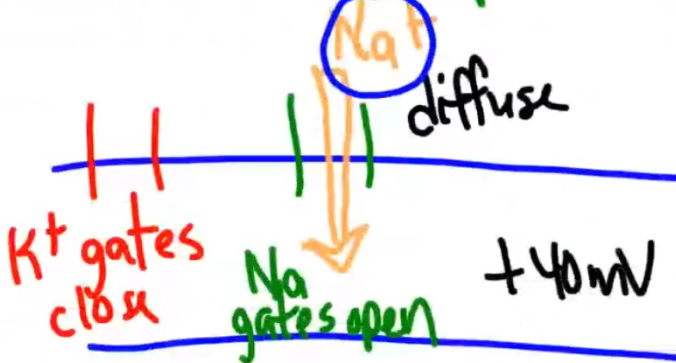 Na+
diffuse
K+ gates
close
Na
gates open
+40mV